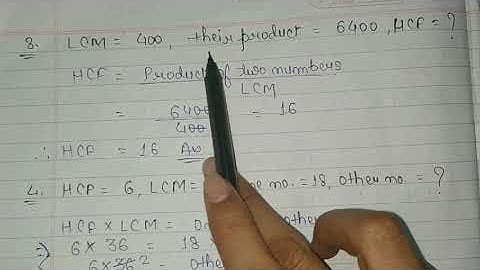 3. LCM = 400, their product = 6400, HCF = ?
HCF = Product of two numbers
LCM
= 6400
400
= 16
∴ HCF = 16 As
4. HCF = 6, LCM = no. = 18, other no. = ?
HCF X LCM =
⇒) 6 X 36 = 18
6 X 36 2 =